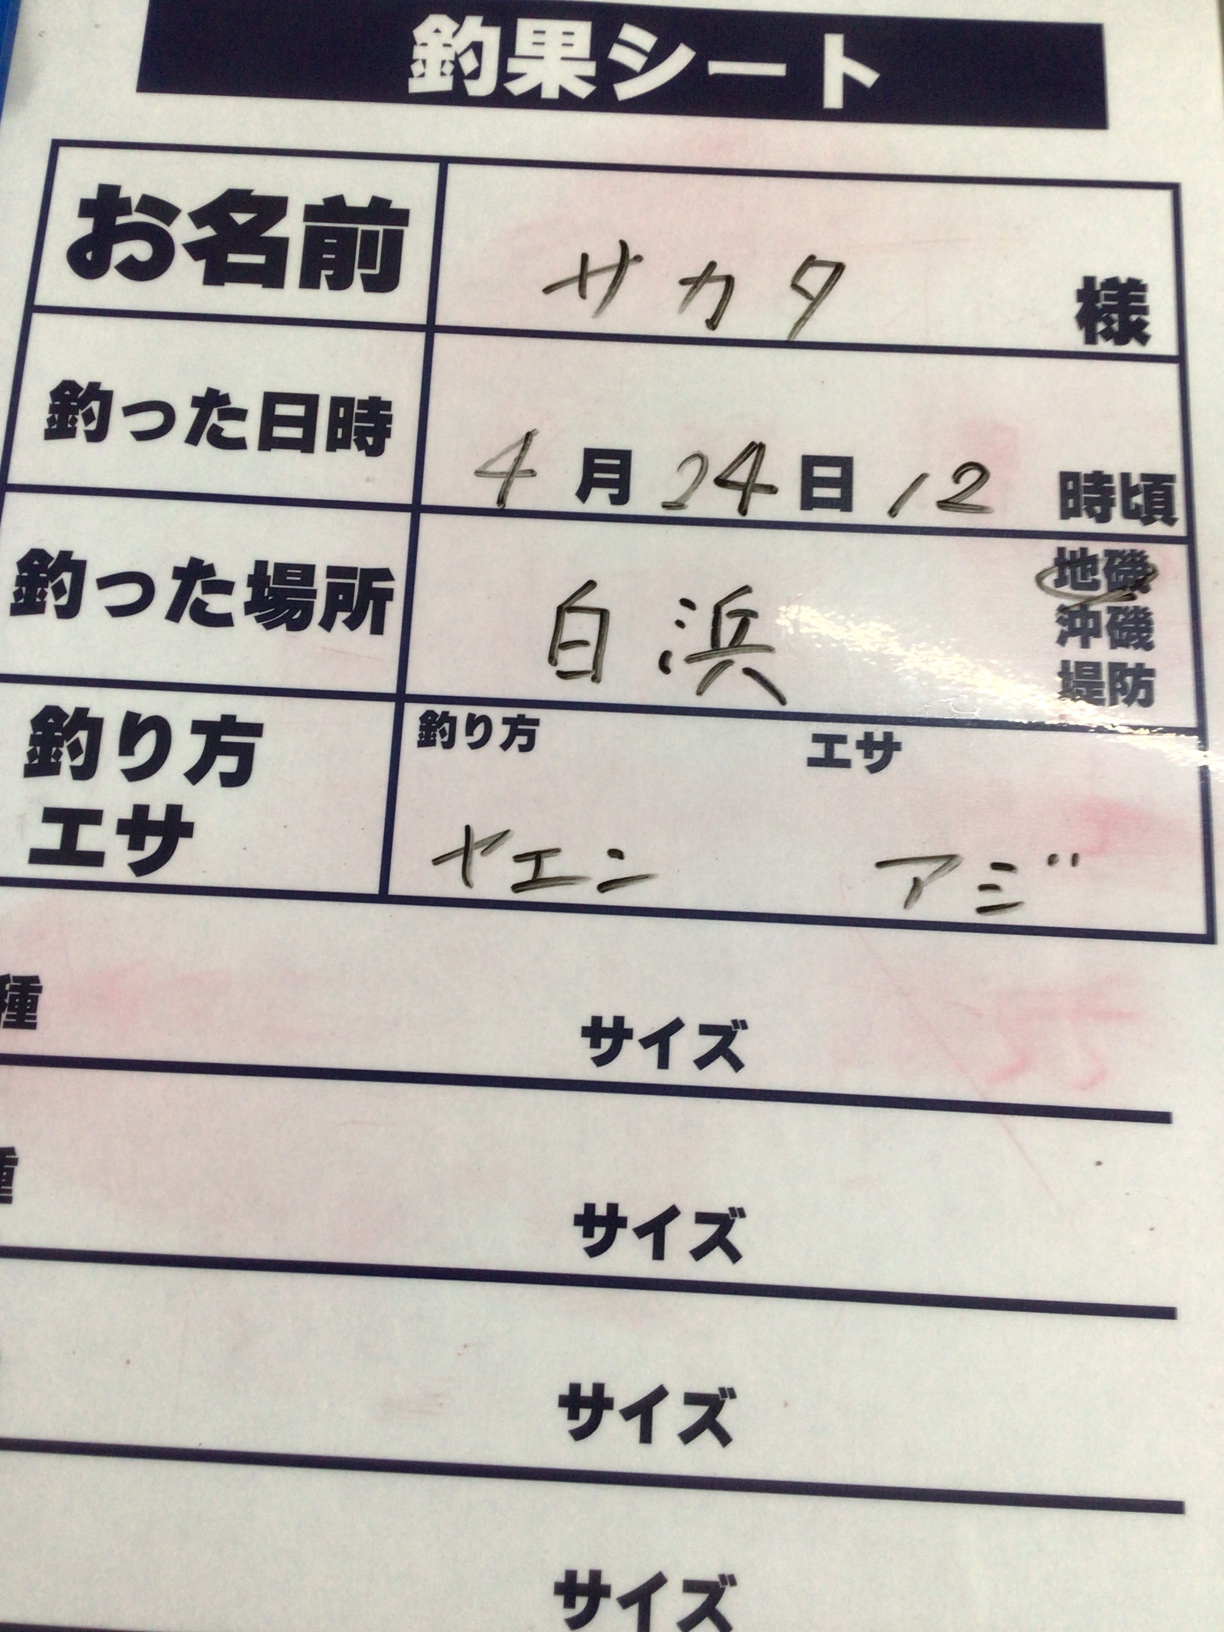 釣果シート
お名前 サカタ 様
釣った日時 4月24日12時頃
釣った場所 白浜 地磯
沖磯
堤防
釣り方 エサ
釣り方
エサ
ヤエン アジ
種 サイズ
種 サイズ
サイズ
サイズ